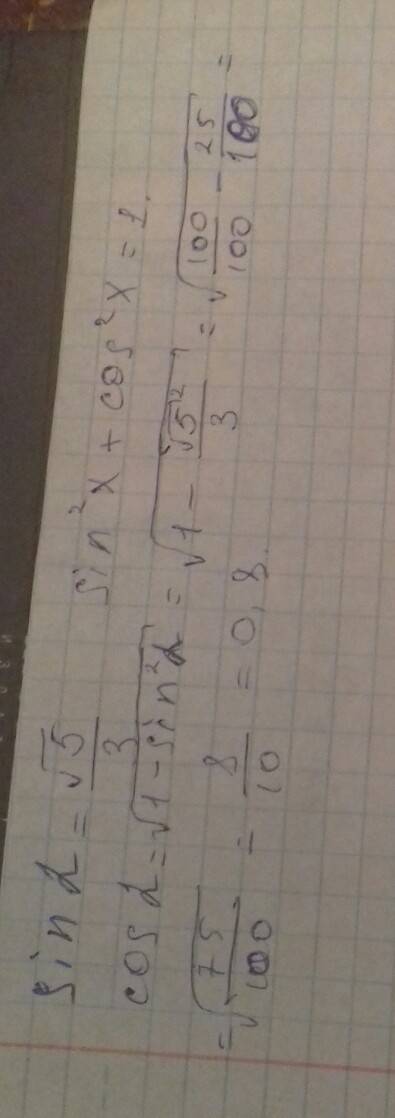 sin α = √5/3 sin²x + cos²x = 1.
cos α = √1 - sin²α = √1 - √5²/3 = √100/100 - 25/100 =
= √75/100 = 8/10 = 0,8.